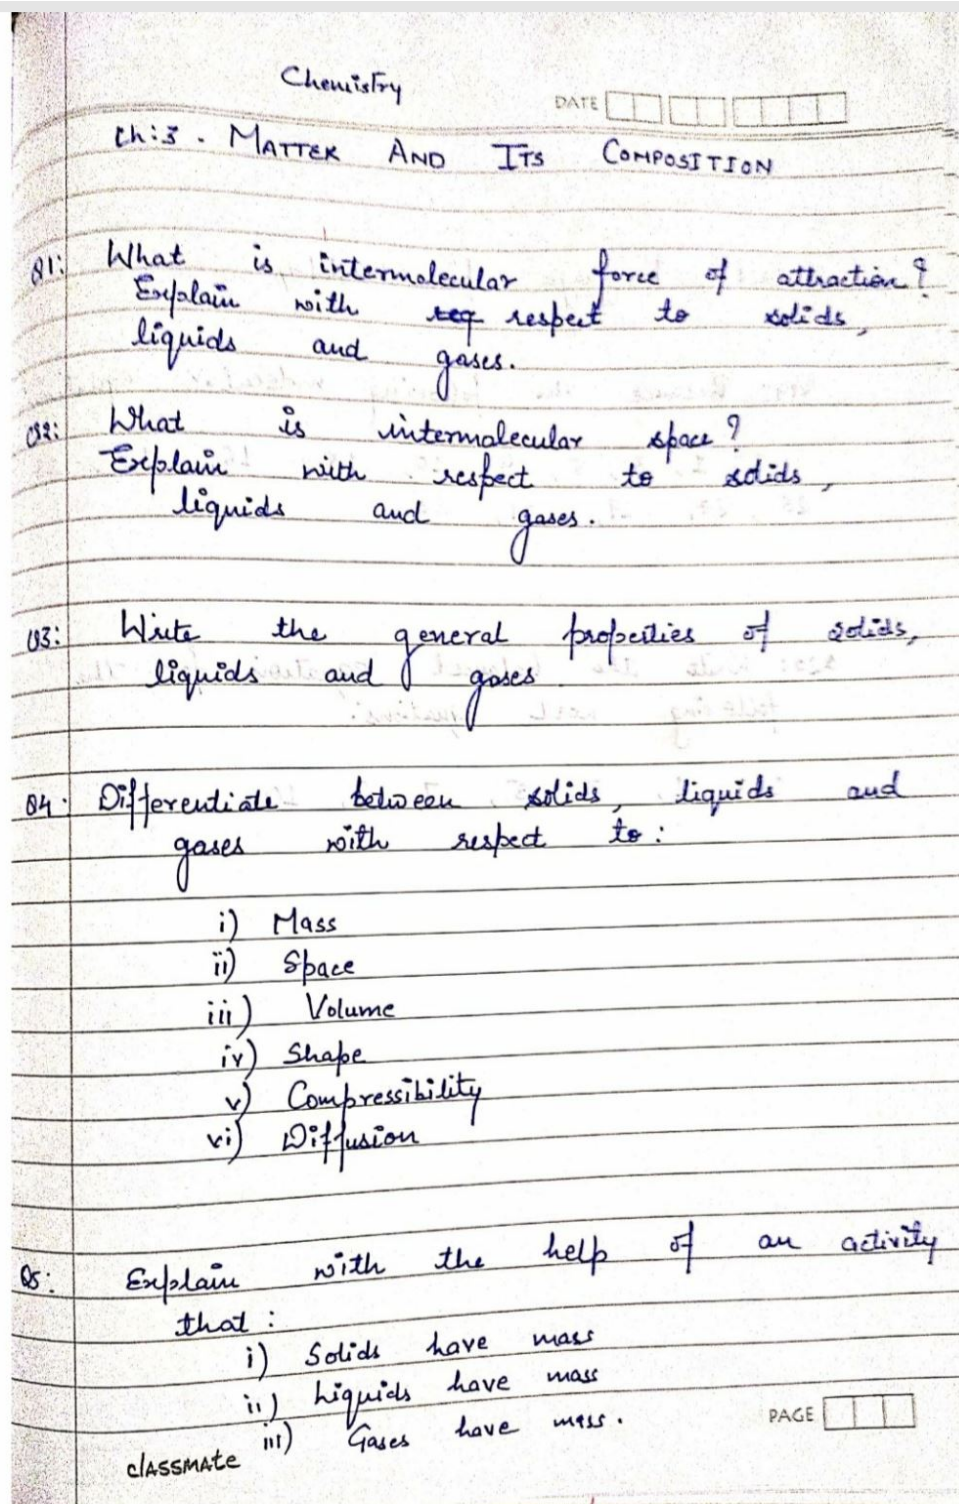 Chemistry
DATE
Ch:3. MATTER AND ITS COMPOSITION
Q1: What is intermolecular force of attraction?
Explain with respect to solids,
liquids and gases.
Q2: What is intermalecular space?
Explain with respect to solids,
liquids and gases.
Q3: Write the general properties of solids,
liquids and gases.
Q4: Differentiate between solids, liquids and
gases with respect to:
i) Mass
ii) Space
iii) Volume
iv) Shape
v) Compressibility
vi) Diffusion
Q5: Explain with the help of an activity
that:
i) Solids have mass
ii) Liquids have mass
iii) Gases have mass.
PAGE
classmate